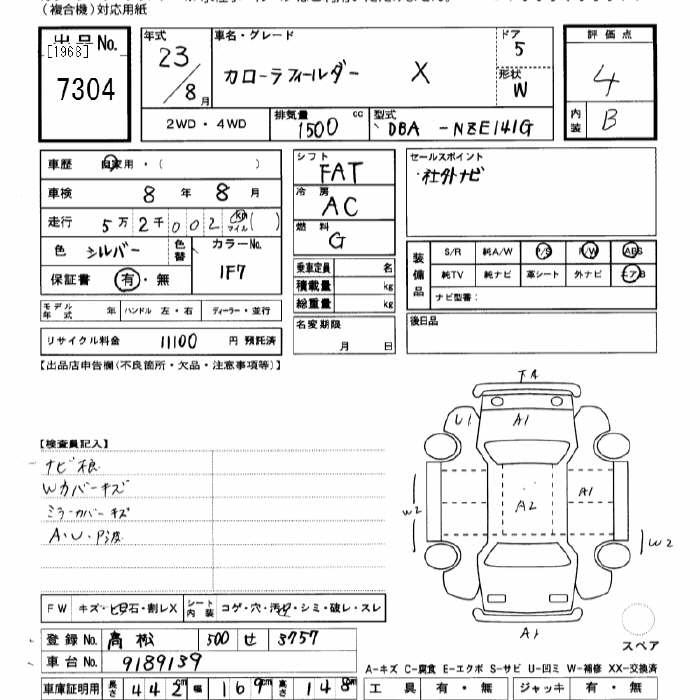 (複合機)対応用紙
出品No.
[1963]
7304
年式
23/8月
車名・グレード
カローラフィールダー X
ドア
5
形状
W
評価点
4
内装
B
2WD・4WD
排気量
1500 cc
型式
DBA-NZE141G
車歴
自家用・( )
車検
8年 8月
走行
5万2千002 km マイル ( )
色
シルバー
色替
カラーNo.
1F7
保証書
有・無
モデル年式 年
ハンドル 左・右
ディーラー・並行
リサイクル料金 11100 円 預託済
シフト
FAT
冷房
AC
燃料
G
乗車定員 名
積載量 kg
総重量 kg
名変期限
月 日
セールスポイント
社外ナビ
装備品
S/R 純A/W P/S P/W ABS
純TV 純ナビ 革シート 外ナビ エアB
ナビ型番:
後日品
【出品店申告欄(不良箇所・欠品・注意事項等)】
【検査員記入】
ナビ不良
Wカバーキズ
ミラーカバーキズ
A・U・P波
FA
U1
A1
A2
A1
W2
W2
A1
スペア
FW キズ・ヒ・飛石・割レX
シート内装 コゲ・穴・汚レ・シミ・破レ・スレ
登録No. 高松 500 せ 3757
車台No. 9189139
A-キズ C-腐食 E-エクボ S-サビ U-凹ミ W-補修 XX-交換済
車庫証明用 長さ 442cm 幅 169cm 高さ 148cm
工具 有・無 ジャッキ 有・無